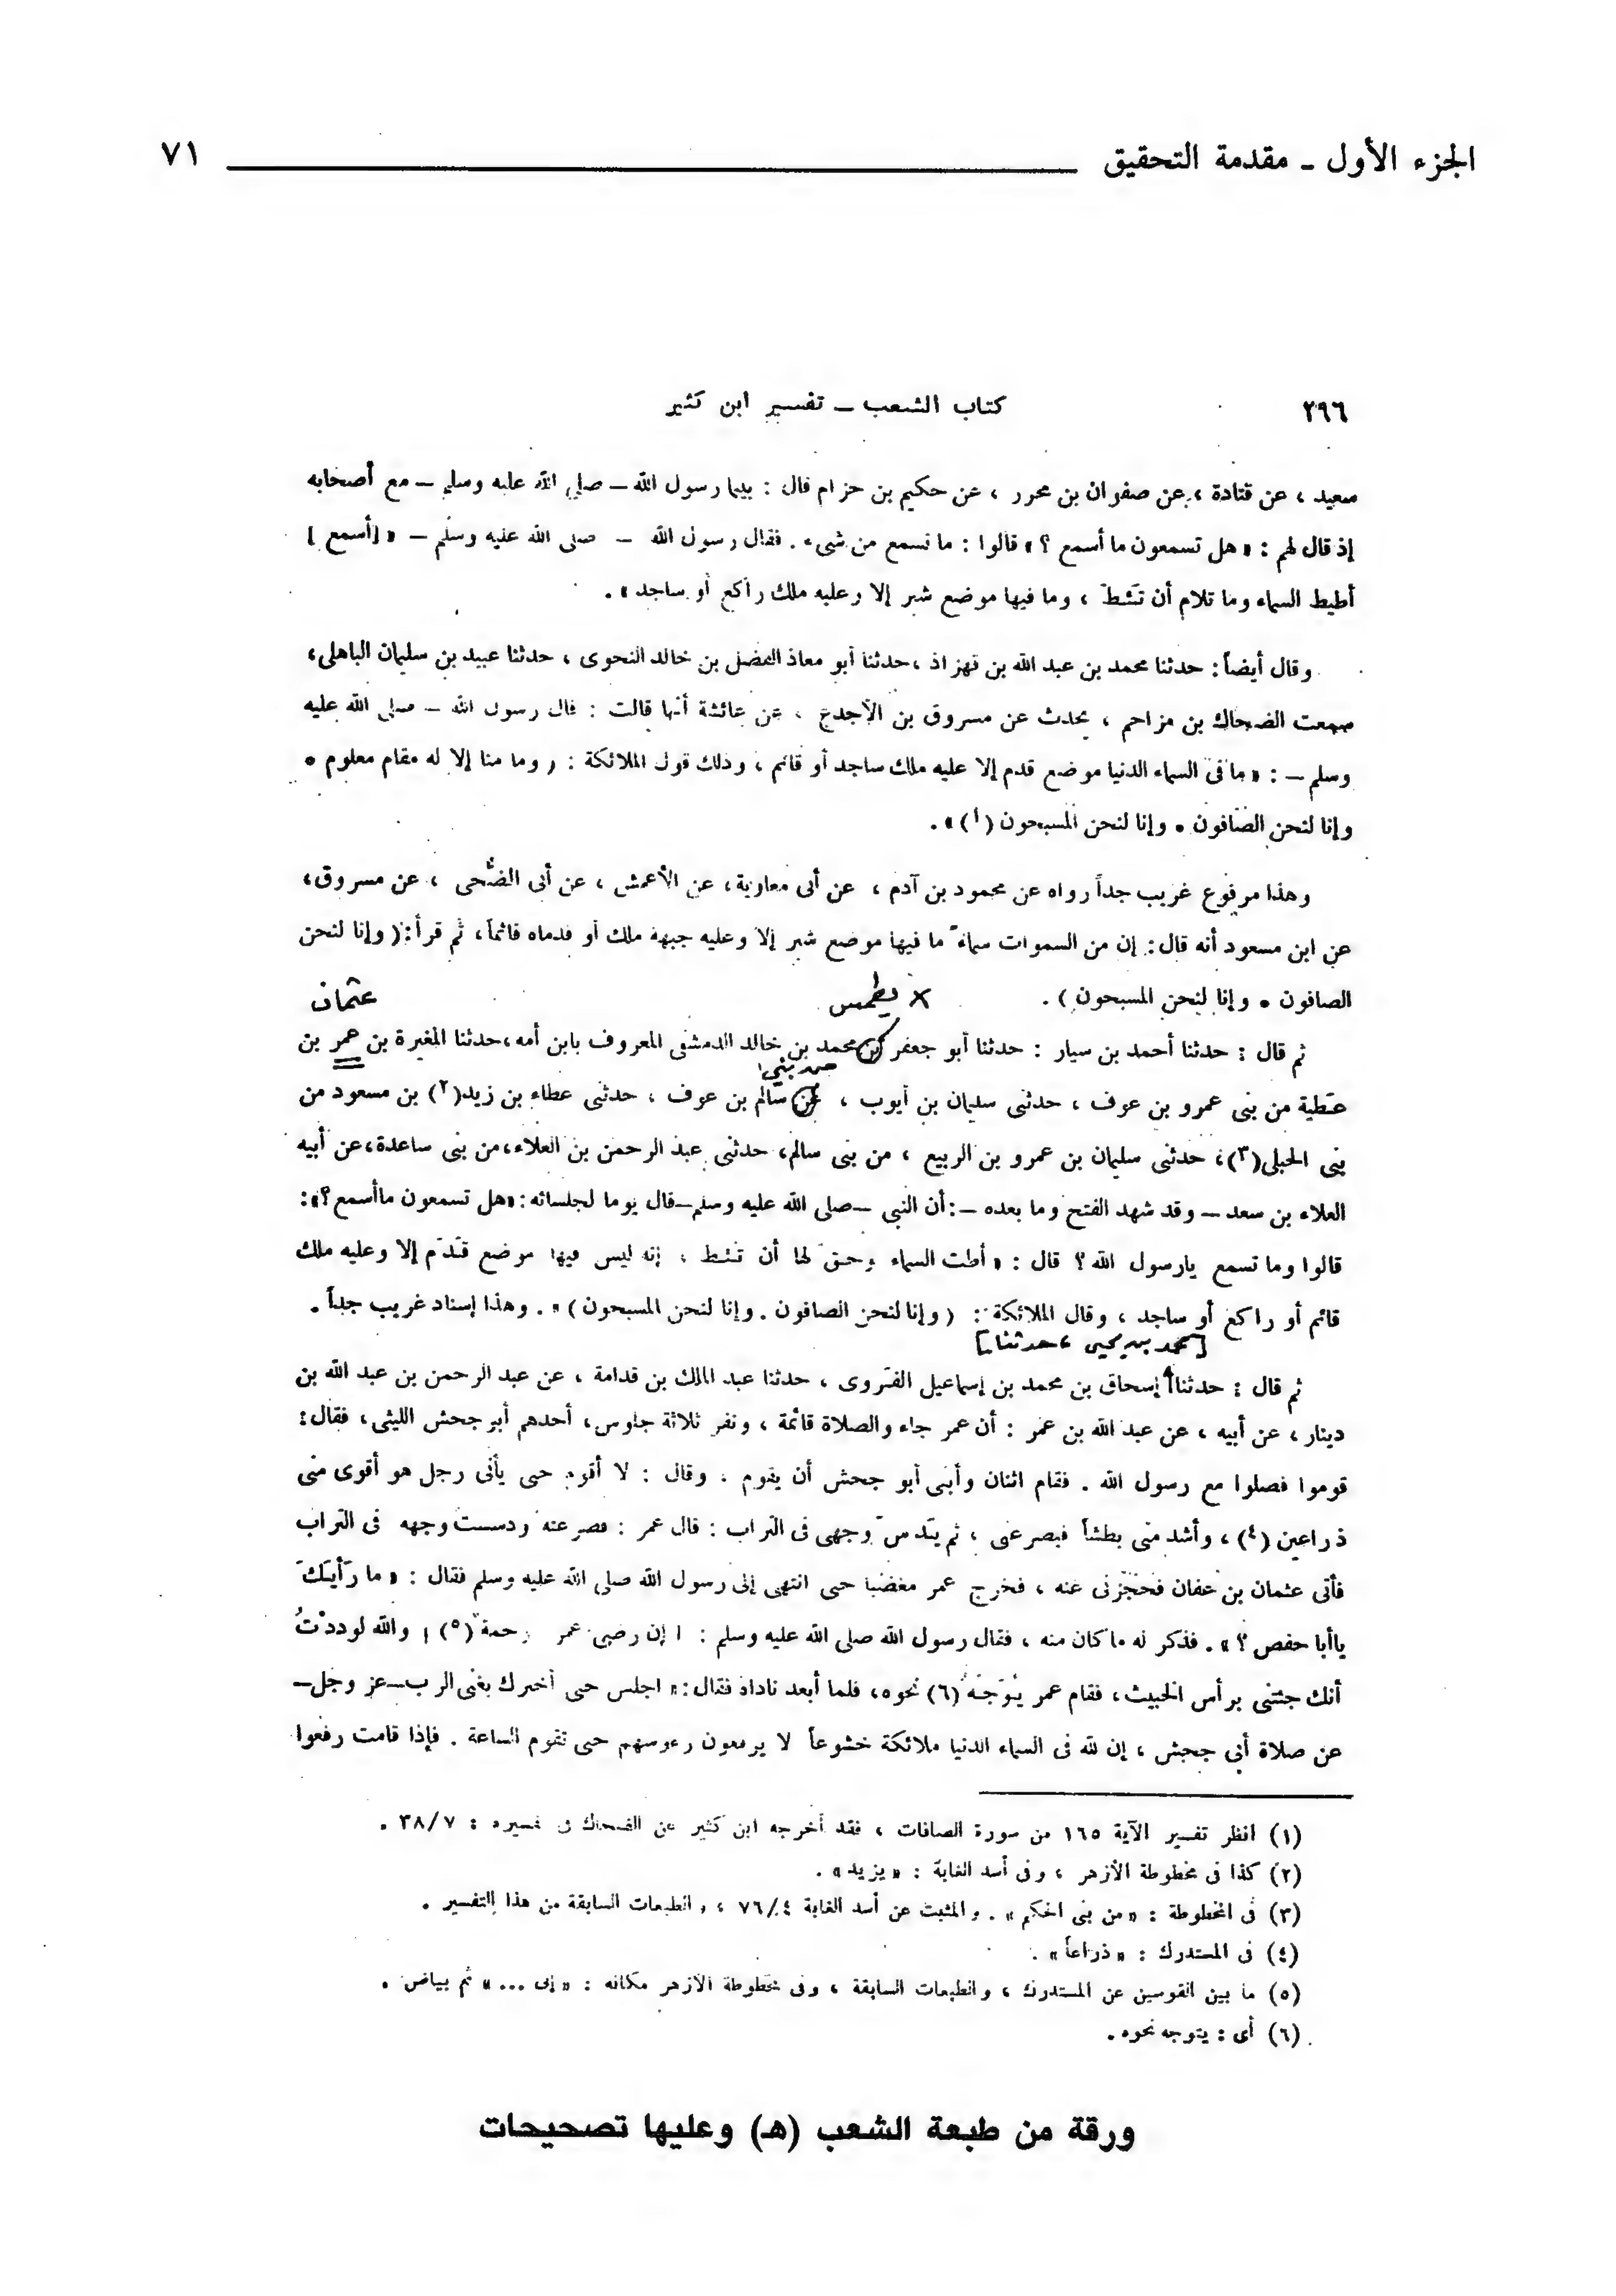 الجزء الأول ـ مقدمة التحقيق ٧١
٢٩٦ كتاب الشعب – تفسير ابن كثير
سعيد ، عن قتادة ، عن صفوان بن محرر ، عن حكيم بن حزام قال : بينما رسول الله – صلى الله عليه وسلم – مع أصحابه
إذ قال لهم : « هل تسمعون ما أسمع ؟ » قالوا : ما نسمع من شيء . فقال رسول الله – صلى الله عليه وسلم – « [أسمع ]
أطيط السماء وما تلام أن تئط ، وما فيها موضع شبر إلا وعليه ملك راكع أو ساجد » .
وقال أيضاً : حدثنا محمد بن عبد الله بن قهزاذ ، حدثنا أبو معاذ الفضل بن خالد النحوى ، حدثنا عبيد بن سليمان الباهلى ،
سمعت الضحاك بن مزاحم ، يحدث عن مسروق بن الأجدع ، عن عائشة أنها قالت : قال رسول الله – صلى الله عليه
وسلم – : « ما فى السماء الدنيا موضع قدم إلا عليه ملك ساجد أو قائم ، وذلك قول الملائكة : ( وما منا إلا له مقام معلوم ٠
وإنا لنحن الصافون ٠ وإنا لنحن المسبحون (١) » .
وهذا مرفوع غريب جداً رواه عن محمود بن آدم ، عن أبى معاوية ، عن الأعمش ، عن أبى الضُّحى ، عن مسروق ،
عن ابن مسعود أنه قال : إن من السموات سماءً ما فيها موضع شبر إلا وعليه جبهة ملك أو قدماه قائماً ، ثم قرأ : ( وإنا لنحن
الصافون ٠ وإنا لنحن المسبحون ) . × يطمس عثمان
ثم قال : حدثنا أحمد بن سيار : حدثنا أبو جعفر بن محمد بن خالد الدمشقى المعروف بابن أمه ، حدثنا المغيرة بن عمر بن
عطية من بنى عمرو بن عوف ، حدثنى سليمان بن أيوب ، عن سالم بن عوف ، حدثنى عطاء بن زيد(٢) بن مسعود من
بنى الحبلى(٣) ، حدثنى سليمان بن عمرو بن الربيع ، من بنى سالم ، حدثنى عبد الرحمن بن العلاء ، من بنى ساعدة ، عن أبيه
العلاء بن سعد – وقد شهد الفتح وما بعده – : أن النبى – صلى الله عليه وسلم – قال يوما لجلسائه : « هل تسمعون ما أسمع ؟ » :
قالوا وما تسمع يارسول الله ؟ قال : « أطت السماء وحقّ لها أن تئط ، إنه ليس فيها موضع قَدَم إلا وعليه ملك
قائم أو راكع أو ساجد ، وقال الملائكة : ( وإنا لنحن الصافون . وإنا لنحن المسبحون ) » . وهذا إسناد غريب جداً .
[محمد بن يحيى ، حدثنا]
ثم قال : حدثنا إسحاق بن محمد بن إسماعيل الفَروى ، حدثنا عبد الملك بن قدامة ، عن عبد الرحمن بن عبد الله بن
دينار ، عن أبيه ، عن عبد الله بن عمر : أن عمر جاء والصلاة قائمة ، ونفر ثلاثة جلوس ، أحدهم أبو جحش الليثى ، فقال :
قوموا فصلوا مع رسول الله . فقام اثنان وأبى أبو جحش أن يقوم ، وقال : لا أقوم حتى يأتى رجل هو أقوى منى
ذراعين (٤) ، وأشد منى بطشاً فيصرعنى ، ثم يَدس وجهى فى التراب : قال عمر : فصرعته ودسست وجهه فى التراب
فأتى عثمان بن عفان فحجزنى عنه ، فخرج عمر مغضباً حتى انتهى إلى رسول الله صلى الله عليه وسلم فقال : « ما رَأيكَ
ياأبا حفص ؟ » . فذكر له ما كان منه ، فقال رسول الله صلى الله عليه وسلم : ( إن رضى عمر رحمة (٥) ) والله لوددْتُ
أنك جئتنى برأس الخبيث ، فقام عمر يُوَجّه (٦) نحوه ، فلما أبعد ناداه فقال : « اجلس حتى أخبرك بغنى الرب – عز وجل –
عن صلاة أبى جحش ، إن لله فى السماء الدنيا ملائكة خشوعاً لا يرفعون رءوسهم حتى تقوم الساعة . فإذا قامت رفعوا
(١) انظر تفسير الآية ١٦٥ من سورة الصافات ، فقد أخرجه ابن كثير عن الضحاك فى تفسيره : ٣٨/٧ .
(٢) كذا فى مخطوطة الأزهر ، وفى أسد الغابة : « يزيد » .
(٣) فى المخطوطة : « من بنى الحكم » . والمثبت عن أسد الغابة ٧٦/٤ ، والطبعات السابقة من هذا التفسير .
(٤) فى المستدرك : « ذراعاً » .
(٥) ما بين القوسين عن المستدرك ، والطبعات السابقة ، وفى مخطوطة الأزهر مكانه : « إلى ... » ثم بياض .
(٦) أى : يتوجه نحوه .
ورقة من طبعة الشعب (هـ) وعليها تصحيحات